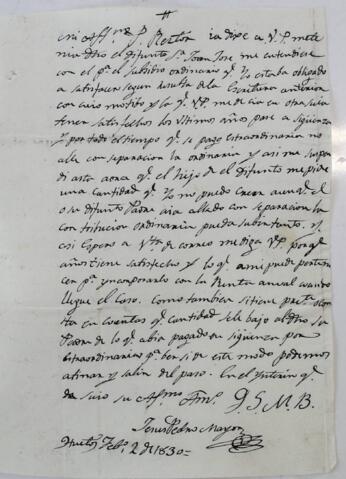 mi Affmo P. Rector ia dixe a V.P. me te
nia dho el difunto Sr Juan Jose, me entendiese
con el pr el subsidio ordinario qe Yo estaba obligado
a satisfacer segun resulta de la Escritura anterior
con cuio motibo y lo qe V.P. me decia en otra suia
tener satisfechos los ultimos años por a Siguenza
y por todo el tiempo qe se pago extraordinario no
alle con separacion la ordinaria y asi me suspen
di asta aora qe el hijo de el difunto me pide
una cantidad qe Yo no puedo creer aunqe el
o su difunto Padre aia allado con separacion la
contribucion ordinaria pueda subir tanto. qe
asi Espero a Vta de correo me diga V.P. por qe
años tiene satisfecho y lo qe a mi puede pertenecer
pa yncorporarlo con la Renta anual cuando
llegue el Caso. Como tambien si tiene presente
en cuentas qe cantidad se le bajo al dho su
Padre de lo qe abia pagado en Siguenza por
extraordinarios pa ber si de este modo podemos
atinar y salir del paso. En el Ynterin qe
da suio su Affmo Amo. Q.S.M.B.
Jenis Pedro Mayor
Huetos Febo 2 de 1830=